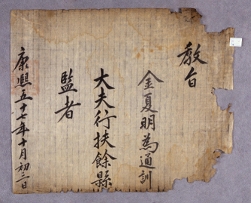 敎旨
金夏明為通訓
大夫行扶餘縣
監者
康熙五十七年十月初三日